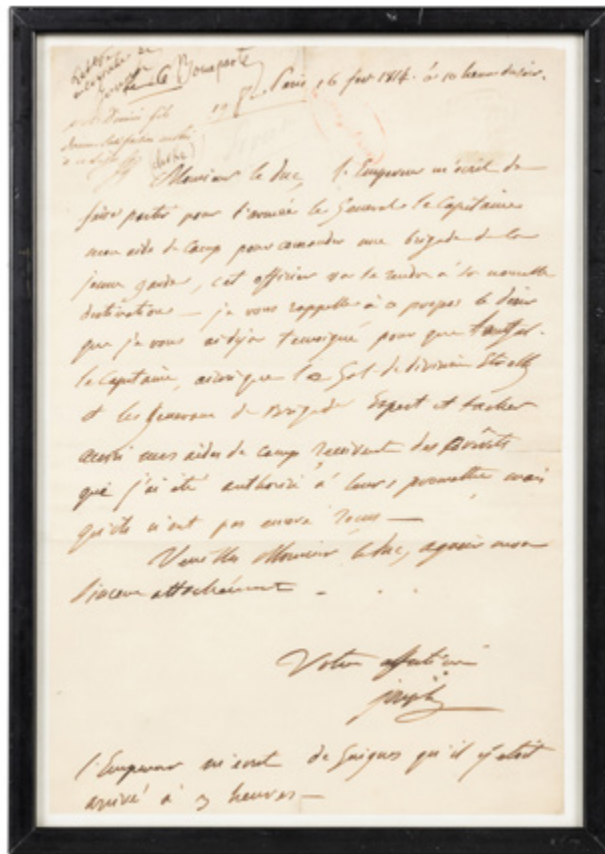 Lettre
autographe de
Joseph
Bonaparte
Paris 16 fevr 1814. à 10 heures du soir.
Monsieur le duc, l'Empereur m'écrit de
faire partir pour l'armée le General le Capitaine
mon aide de camp pour comander une brigade de la
jeune garde, cet officier va se rendre à sa nouvelle
destination — je vous rappelle à ce propos le désir
que je vous ai déja temoigné pour que
le Capitaine, ainsi que le Gal de division
et les generaux de Brigade Expert et tascher
aussi mes aides de camp reçoivent des brévèts
que j'ai été authorisé à leurs promettre mais
qu'ils n'ont pas encore reçus —
Veuillez Monsieur le duc, agréer mon
sincere attachement
Votre affectionné
Joseph
l'Empereur m'écrit de Guignes qu'il y etoit
arrivé à 3 heures —